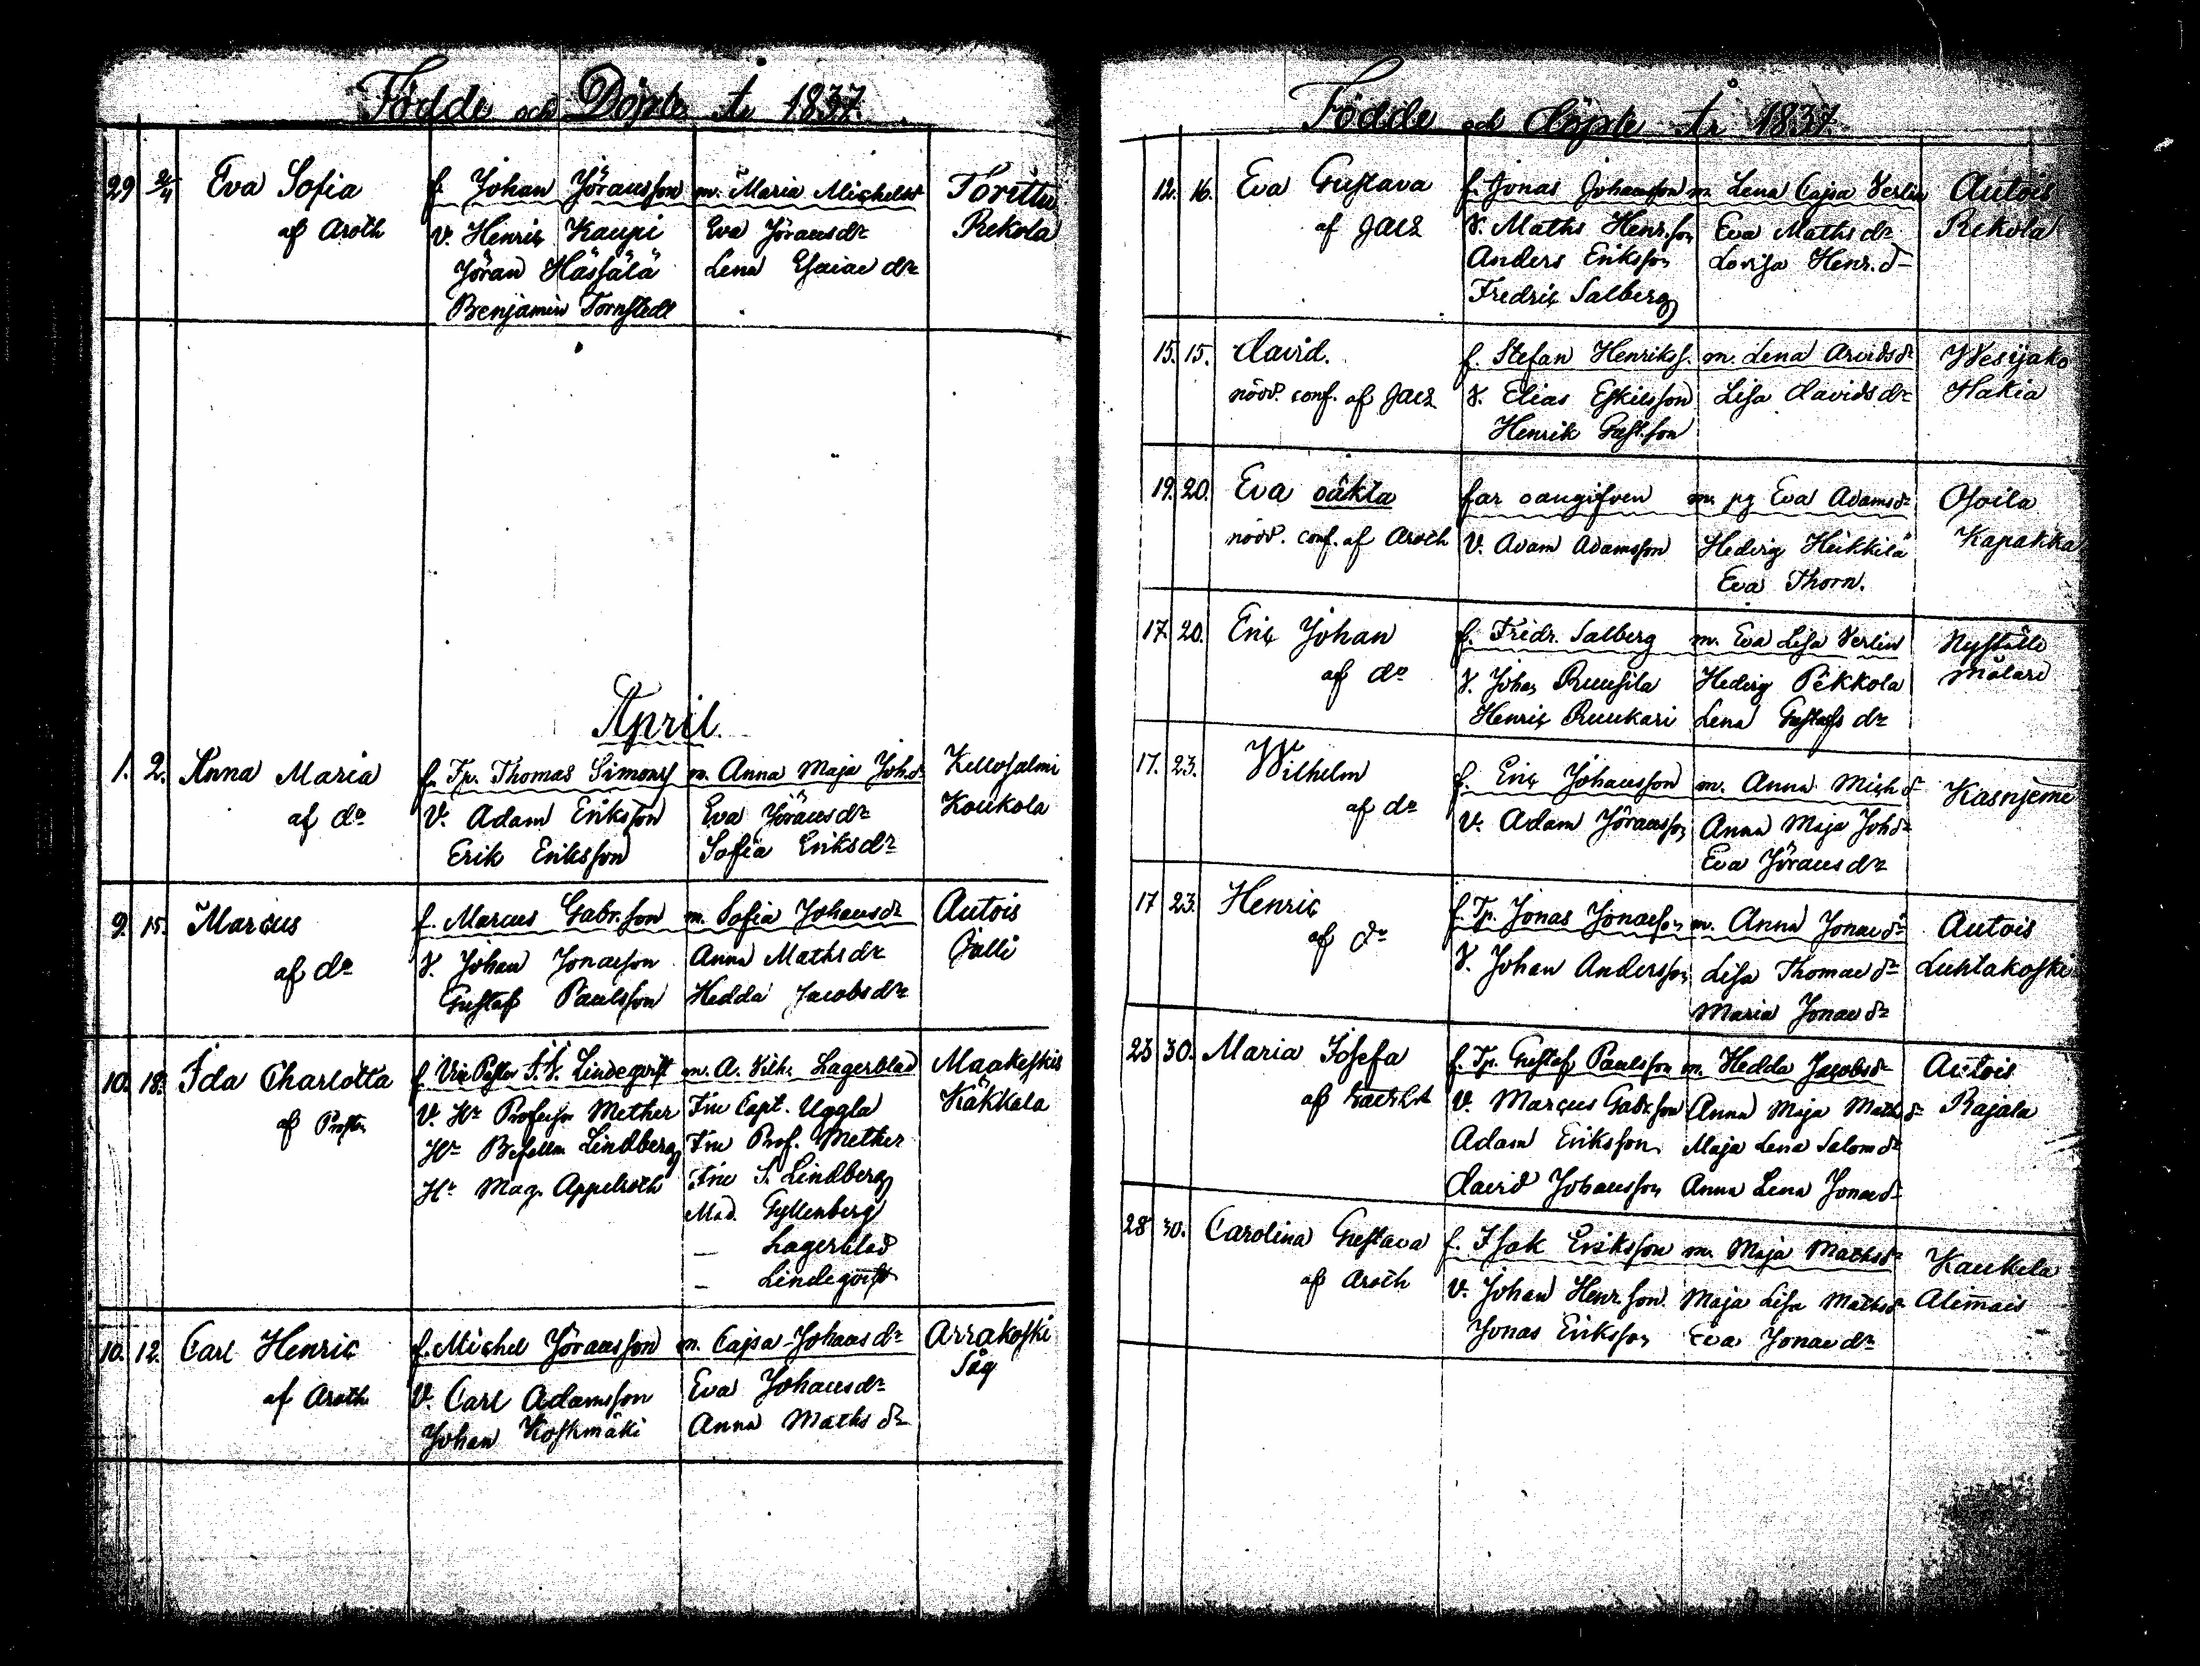 Födde och Döpte År 1837.
29 2/4 Eva Sofia f. Johan Jöransson m. Maria Michelsd Torittu
af Aroth V. Henriç Kaupi Eva Jöransdr Rekola
Jöran Hässälä Lena Esaiae dr
Benjamin Tornstedt
April.
1. 2. Anna Maria f. Tp. Thomas Simonsf m. Anna Maja Joh.d Kellosalmi
af do V. Adam Eriksson Eva Jöransdr Koukola
Erik Eriksson Sofia Eriksdr
9. 15. Marcus f. Marcus Gabr.son m. Sofia Johansdr Autois
af do V. Johan Jonaeson Anna Mathsdr Jalli
Gustaf Paulsson Hedda Jacobsdr
10. 18. Ida Charlotta f. Lindeqvist m. A. Vilh. Lagerblad Maakeskis
af V. Hr Mether Fru Capt. Uggla Käkkala
Hr Lindberg Fru Prof. Mether
Hr Mag. Appelroth Fru S. Lindberg
Mad. Gyllenberg
— Lagerblad
— Lindeqvist
10. 12. Carl Henriç f. Michel Jöransson m. Cajsa Johansdr Arrakoski
af Aroth V. Carl Adamsson Eva Johansdr Såg
Johan Koskmäki Anna Maths dr
Födde och döpte År 1837.
12. 16. Eva Gustava f. Jonas Johansson m. Lena Cajsa Verlin Autois
af JaeL V. Maths Henr.son Eva Maths dr Rekola
Anders Eriksson Lovisa Henr. d
Fredriç Salberg
15. 15. David. f. Stefan Henriks. m. Lena Arvidsdr Wesijako
nödd. conf. af JaeL V. Elias Eskilsson Lisa Davidsdr Hakia
Henrik Gust.son
19. 20. Eva oäkta far oangifven m. pg Eva Adamsdr Osoila
nödd. conf. af Aroth V. Adam Adamsson Hedvig Heikkilä Kapakka
Eva Thorn.
17. 20. Eriç Johan f. Fredr. Salberg m. Eva Lisa Verlin Nyställe
af do V. Johan Ruusila Hedvig Pekkola målare
Henriç Ruukari Lena Gustafs dr
17. 23. Wilhelm f. Eriç Johansson m. Anna Mich d Kasnjeme
af do V. Adam Jöransson Anna Maja Johdr
Eva Jöransdr
17 23. Henriç f. Tp. Jonas Jonaeson m. Anna Jonaedr Autois
af do V. Johan Andersson Lisa Thomaedr Luhtakoski
Maria Jonaedr
23 30. Maria Josefa f. Tp. Gustaf Paulsson m. Hedda Jacobsdr Autois
af V. Marcus Gabr.son Anna Maja Mathsdr Rajala
Adam Eriksson Maja Lena Salomdr
David Johansson Anna Lena Jonaedr
28 30. Carolina Gustava f. Isak Eriksson m. Maja Mathsdr Kaukela
af Aroth V. Johan Henr.son Maja Lisa Mathsdr Alimais
Jonas Eriksson Eva Jonaedr